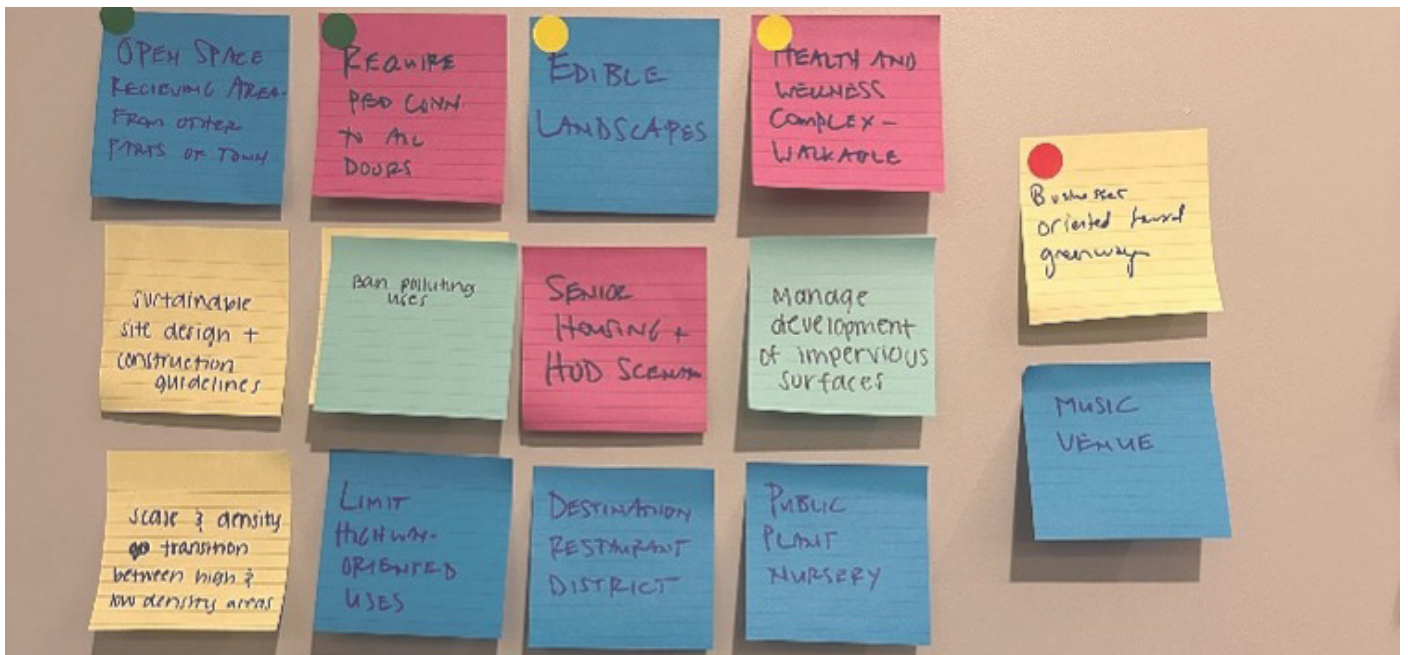 OPEN SPACE
RECIEVING AREA-
FROM OTHER
PARTS OF TOWN
REQUIRE
PED CONN.
TO ALL
DOORS
EDIBLE
LANDSCAPES
HEALTH AND
WELLNESS
COMPLEX -
WALKABLE
Businesses
oriented toward
greenway
sustainable
site design +
construction
guidelines
Ban polluting
uses
SENIOR
HOUSING +
HUD
Manage
development
of impervious
surfaces
MUSIC
VENUE
scale & density
transition
between high &
low density areas
LIMIT
HIGHWAY-
ORIENTED
USES
DESTINATION
RESTAURANT
DISTRICT
PUBLIC
PLANT
NURSERY